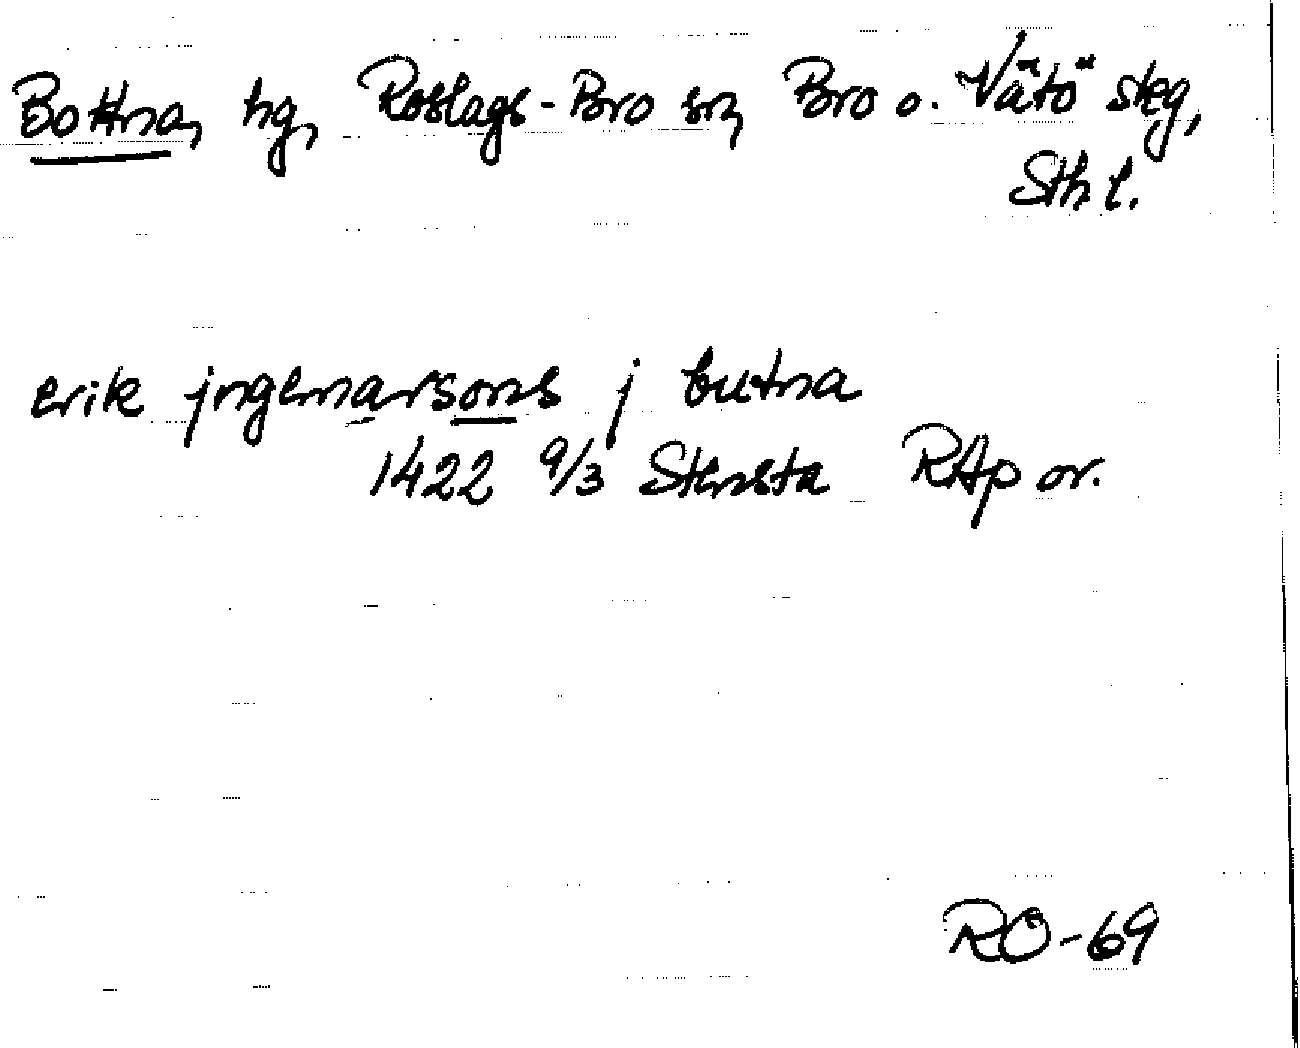 Bottna, hg, Roslags-Bro sn, Bro o. Vätö skg,
Sth l.
erik jngemarsons j butna
1422 9/3 Stensta RAp or.
RO-69